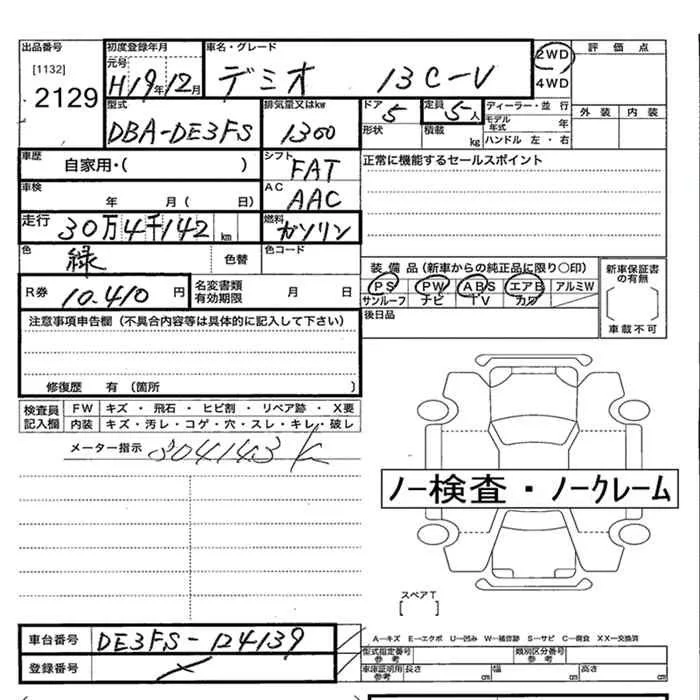 出品番号
[1132]
2129
初度登録年月
元号
H19年12月
車名・グレード
デミオ 13C-V
2WD
4WD
評価点
外装 内装
型式
DBA-DE3FS
排気量又はkw
1300
ドア
5
形状
定員
5人
積載
kg
ディーラー・並行
モデル年式 年
ハンドル 左・右
車歴
自家用・( )
シフト
FAT
正常に機能するセールスポイント
車検
年 月( 日)
AC
AAC
走行
30万4千142km
燃料
ガソリン
色
緑
色替
色コード
装備品(新車からの純正品に限り○印)
PS PW ABS エアB アルミW
サンルーフ ナビ TV カワ
新車保証書
の有無
車載不可
R券
10.410円
名変書類
有効期限
月 日
後日品
注意事項申告欄(不具合内容等は具体的に記入して下さい)
修復歴 有(箇所 )
検査員
記入欄
FW キズ・飛石・ヒビ割・リペア跡・X要
内装 キズ・汚レ・コゲ・穴・スレ・キレ・破レ
メーター指示 304143k
ノー検査・ノークレーム
スペアT
[ ]
車台番号
DE3FS-124139
登録番号
A―キズ E―エクボ U―凹み W―補修跡 S―サビ C―腐食 XX―交換済
型式指定番号
参考
類別区分番号
参考
車庫証明用
参考
長さ cm 幅 cm 高さ cm